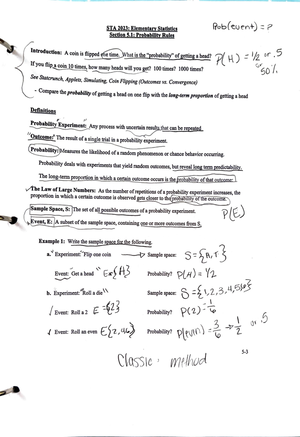 STA 2023: Elementary Statistics
Section 5.1: Probability Rules
Prob(event) = ?
Introduction: A coin is flipped one time. What is the "probability" of getting a head? P(H) = 1/2 or .5
or 50%
If you flip a coin 10 times, how many heads will you get? 100 times? 1000 times?
See Statcrunch, Applets, Simulating, Coin Flipping (Outcomes vs. Convergence)
- Compare the probability of getting a head on one flip with the long-term proportion of getting a head
Definitions
Probability Experiment: Any process with uncertain results that can be repeated.
Outcome: The result of a single trial in a probability experiment.
Probability: Measures the likelihood of a random phenomenon or chance behavior occurring.
Probability deals with experiments that yield random outcomes, but reveal long term predictability.
The long-term proportion in which a certain outcome occurs is the probability of that outcome.
The Law of Large Numbers: As the number of repetitions of a probability experiment increases, the
proportion in which a certain outcome is observed gets closer to the probability of the outcome.
Sample Space, S: The set of all possible outcomes of a probability experiment.
P(E)
Event, E: A subset of the sample space, containing one or more outcomes from S.
Example 1: Write the sample space for the following.
a. Experiment: Flip one coin Sample space: S = {H, T}
Event: Get a head E = {H} Probability? P(H) = 1/2
b. Experiment: Roll a die Sample space: S = {1, 2, 3, 4, 5, 6}
Event: Roll a 2 E = {2} Probability? P(2) = 1/6
Event: Roll an even E {2, 4, 6} Probability? P(even) = 3/6 → 1/2 or .5
5-1
method